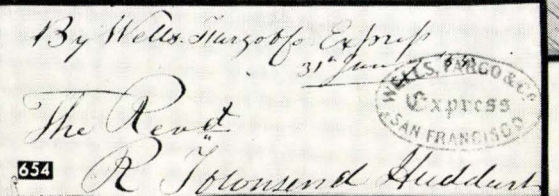 By Wells Fargo & Co Express
31st Jan
WELLS, FARGO & CO
Express
SAN FRANCISCO
The Revd
654
R Townsend Huddart